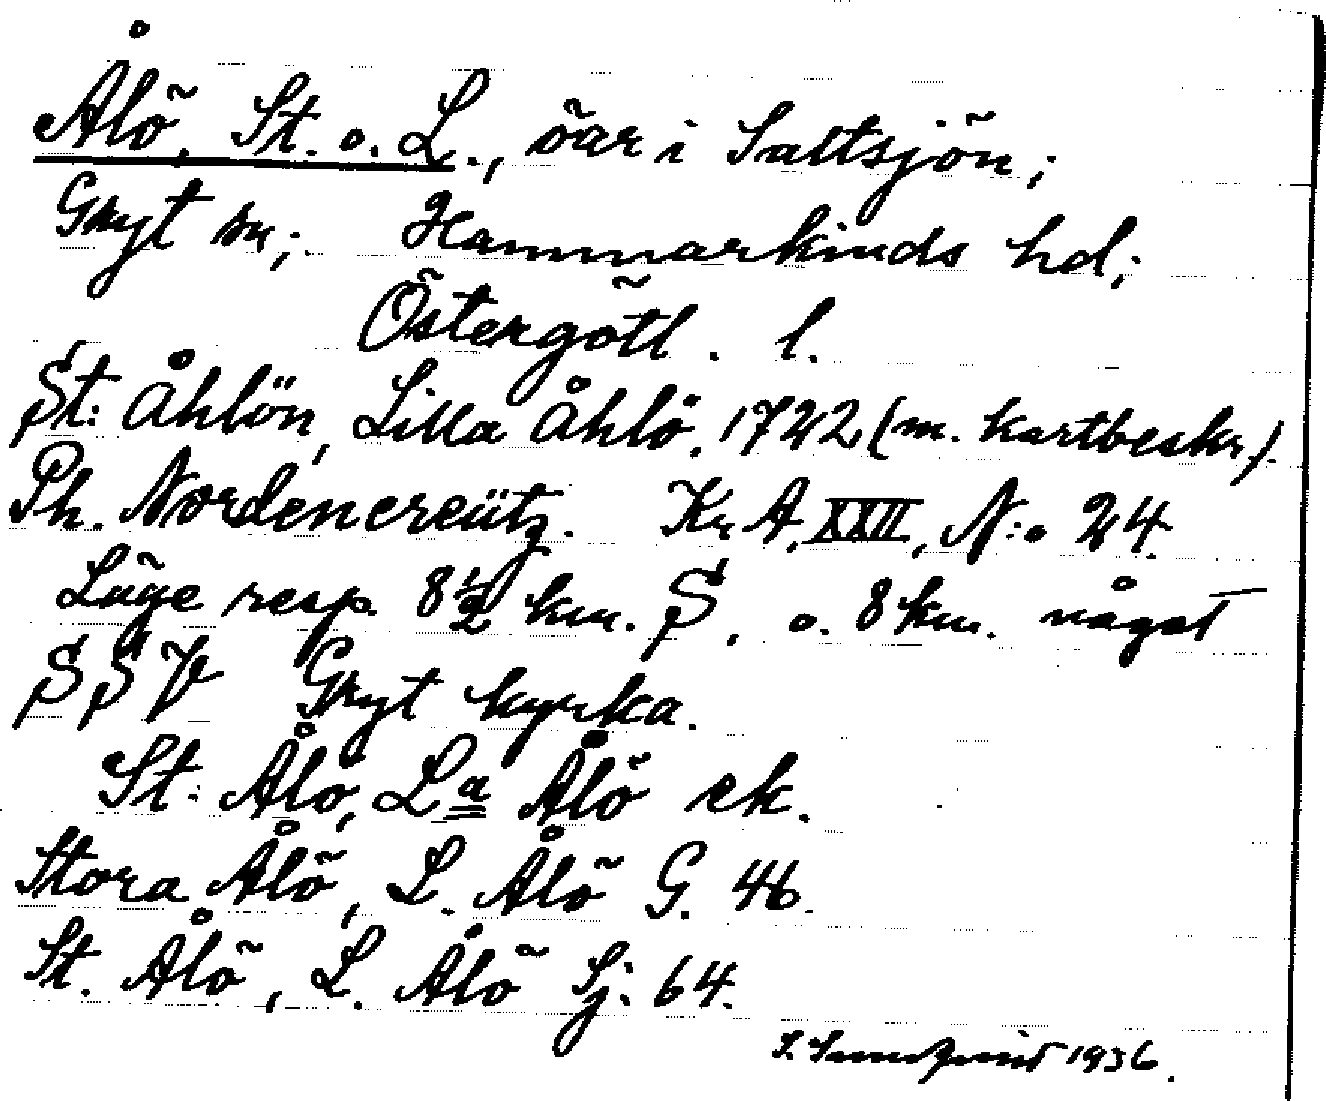 Ålö, St. o. L., öar i Saltsjön;
Gryt sn; Hammarkinds hd;
Östergötl. l.
St: Åhlön, Lilla Åhlö. 1722 (m. kartbeskr.).
Ph. Nordencreütz. Kr A. XXII, N:o 24.
Läge resp. 8½ km. S, o. 8 km. något
S S V Gryt kyrka.
St: Ålö, La Ålö ek.
Stora Ålö, L. Ålö G. 46.
St. Ålö, L. Ålö Sj: 64.
1936.